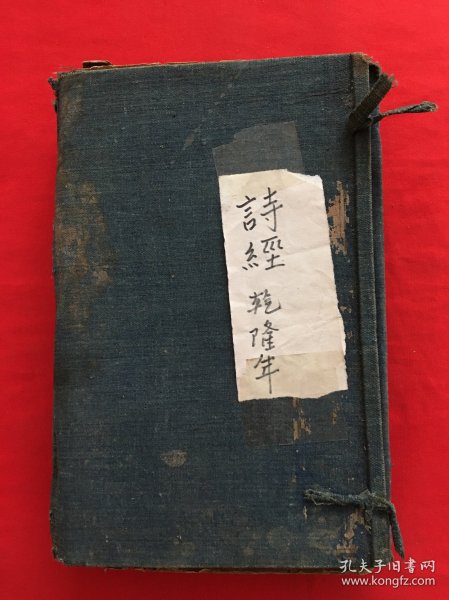 詩經 乾隆年
孔夫子旧书网
www.kongfz.com